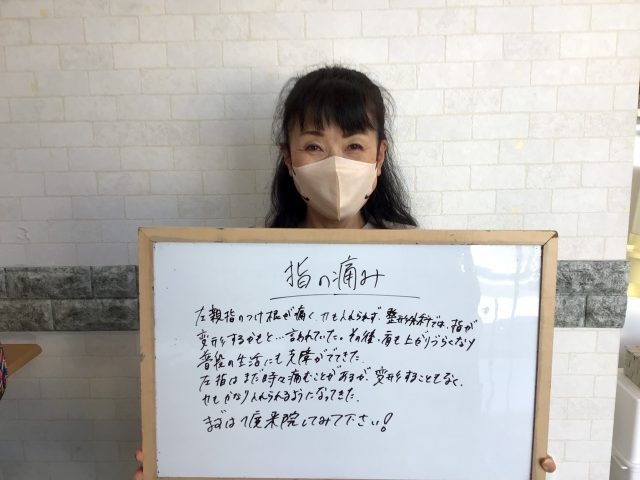 指の痛み
左親指のつけ根が痛く、力も入れられず、整形外科では、指が
変形するかもと…言われていた。その後、肩も上がりづらくなり
普段の生活にも支障がでてきた。
左指はまだ時々痛むことがあるが、変形することもなく、
力もかなり入れられるようになってきた。
まずは1度来院してみて下さい!